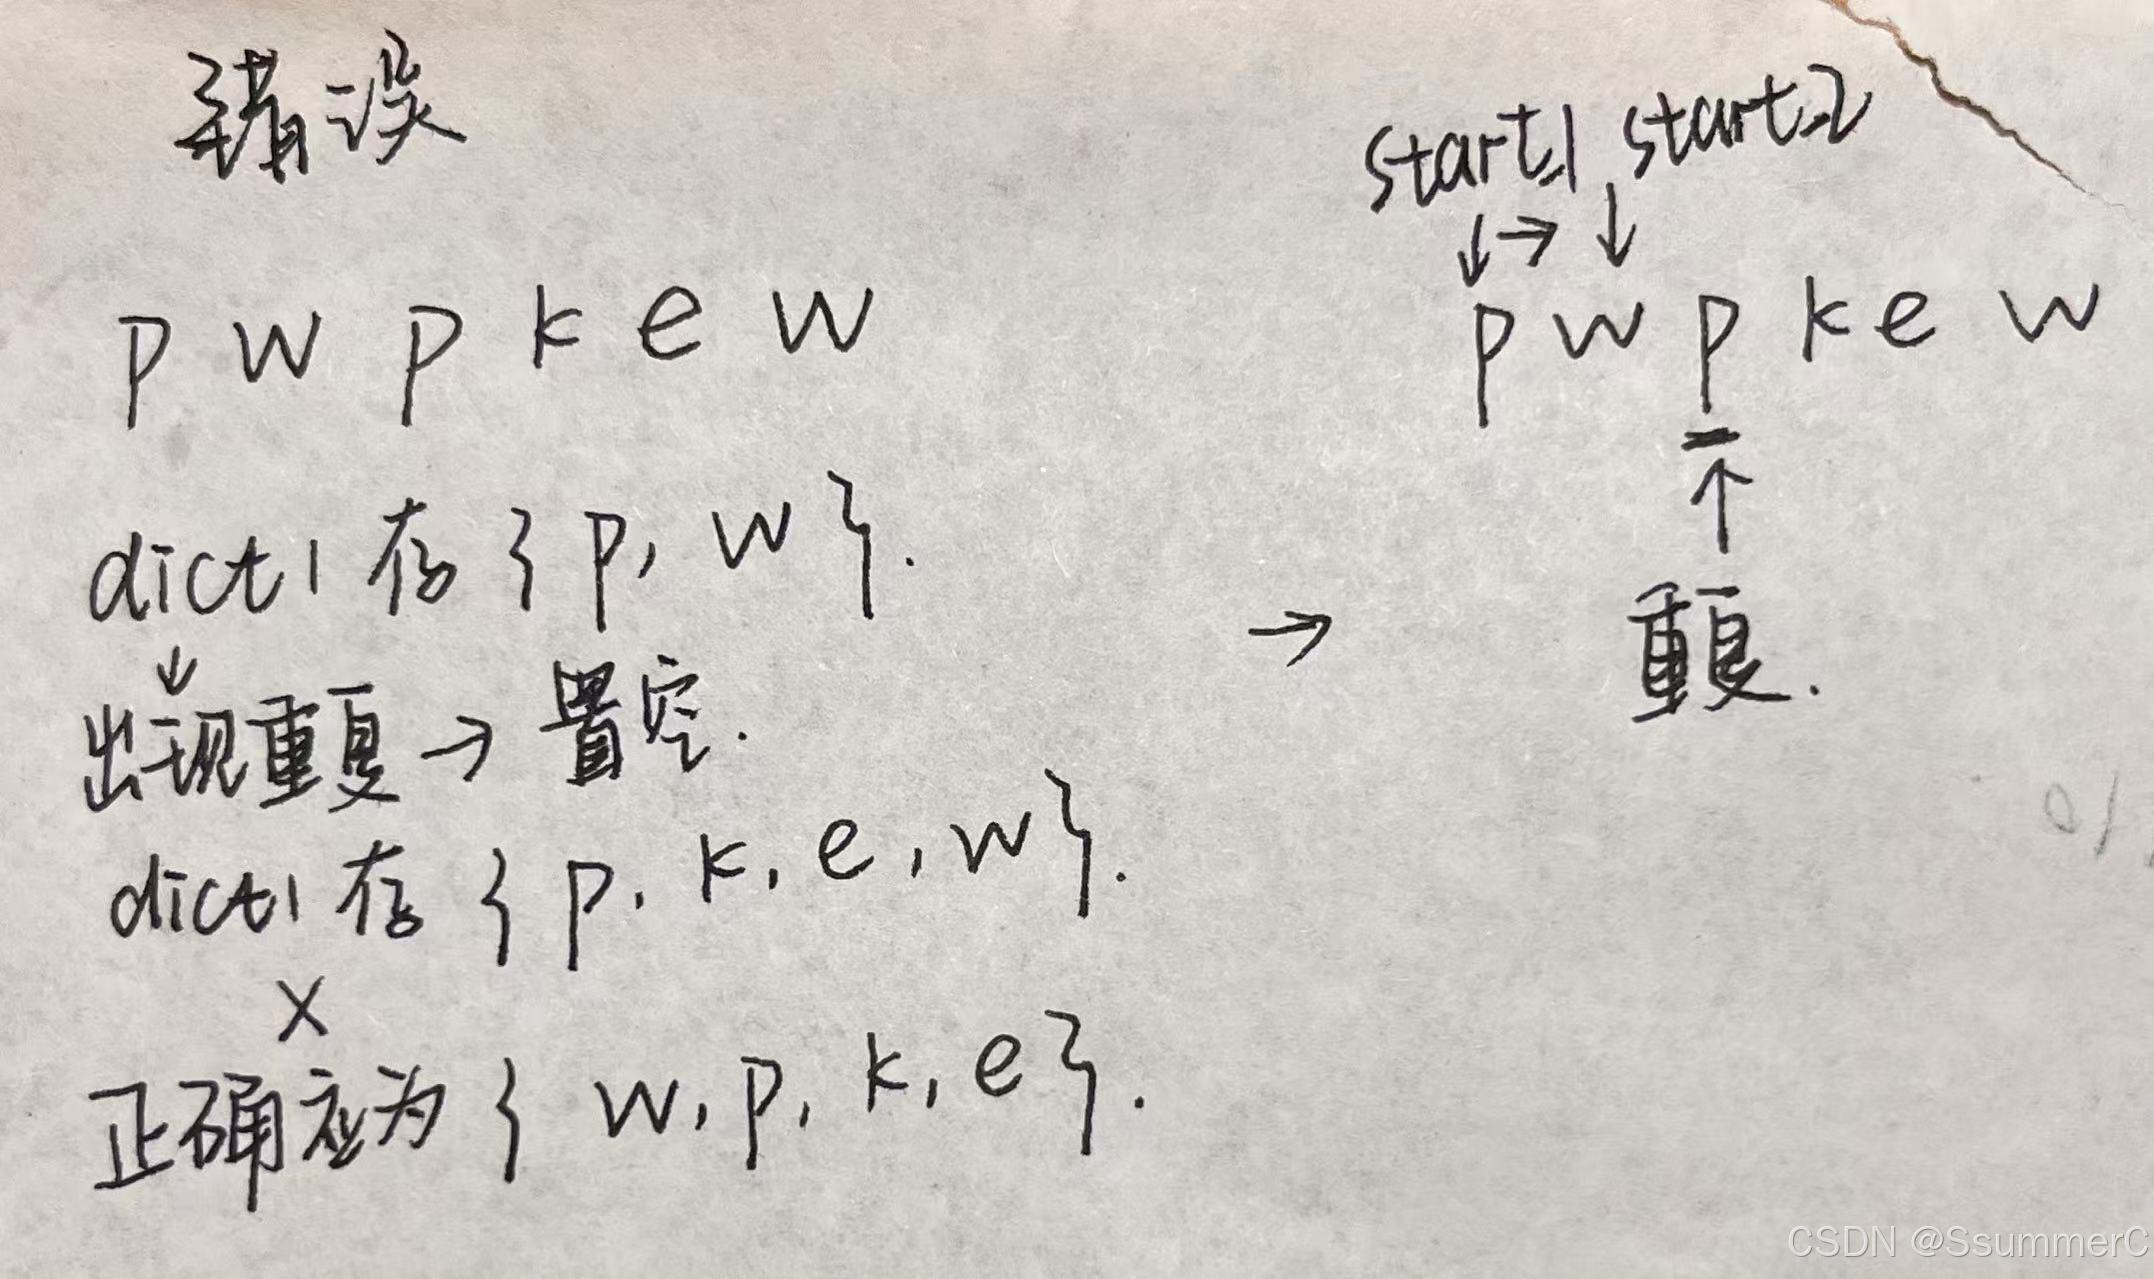 错误
p w p k e w
dict1 存 { p, w }.
↓
出现重复 → 置空.
dict1 存 { p, k, e, w }.
×
正确应为 { w, p, k, e }.
→
start1 start2
↓ → ↓
p w p k e w
↑
重复.
CSDN @SsummerC